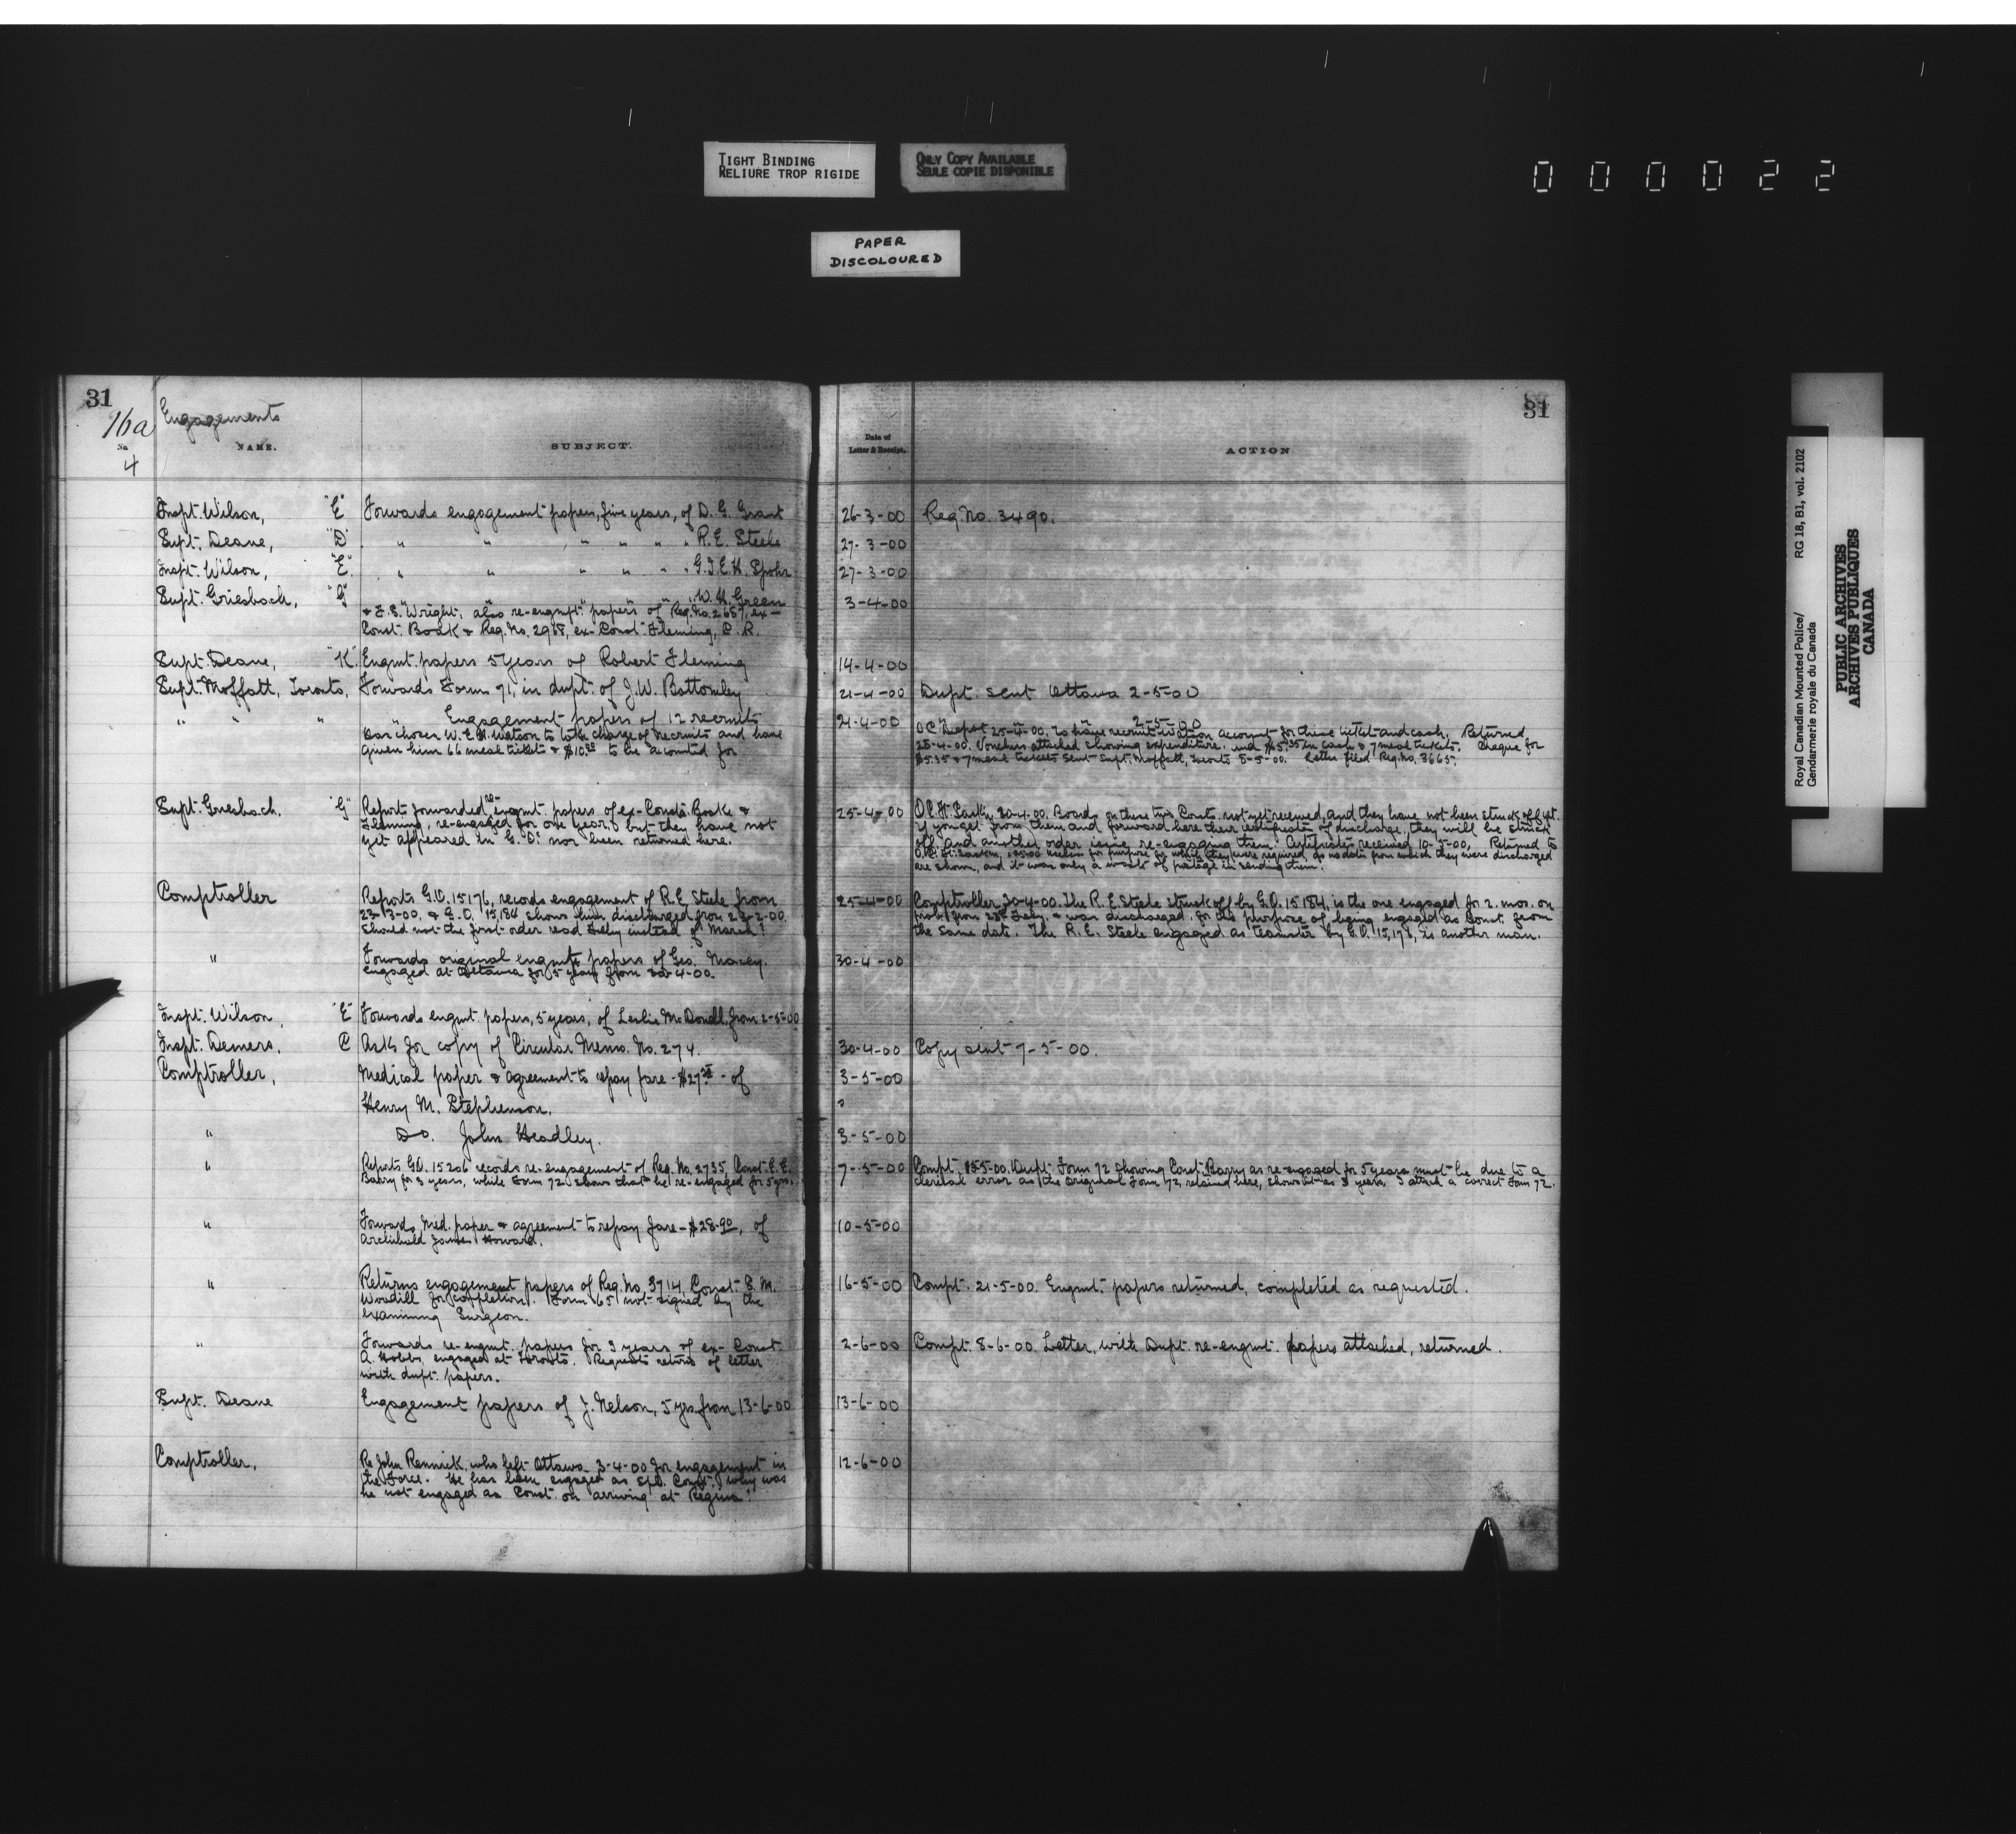 TIGHT BINDING
RELIURE TROP RIGIDE
ONLY COPY AVAILABLE
SEULE COPIE DISPONIBLE
000022
PAPER
DISCOLOURED
31
16a Engagements
No. NAME. SUBJECT.
4
Inspt. Wilson, "E" Forwards engagement papers, five years, of D. G. Grant
Supt. Deane, "D" " " " " " " R. E. Steele
Inspt. Wilson, "E" " " " " " " G.J.E.H. Spohr
Supt. Griesbach, "G" " " " " " " W. H. Green
& F. S. Wright. also re-engmt. papers of Reg. No. 2687, ex-
Const. Boak & Reg. No. 2988, ex-Const. Fleming, C. R.
Supt. Deane, "K" Engmt. papers 5 years of Robert Fleming
Supt. Moffatt, Toronto, Forwards Form 71, in dupt. of J. W. Bottomley
" " " " Engagement papers of 12 recruits
Has chosen W. E. H. Watson to take charge of recruits and have
given him 66 meal tickets & $10.00 to be acounted for
Supt. Griesbach. "G" Reports forwarded re-engmt. papers of ex-Consts. Boake &
Fleming, re-engaged for one year, but they have not
yet appeared in G. O. nor been returned here.
Comptroller Reports G.O. 15176, records engagement of R. E Steele from
23-3-00, & G.O. 15,184 shows him discharged from 23-2-00.
Should not the first order read Feby instead of March?
" Forwards original engmt. papers of Geo. Macey.
engaged at Ottawa for 5 years from 30-4-00.
Inspt. Wilson, "E" Forwards engmt papers, 5 years, of Leslie McDonell, from 2-5-00
Inspt. Demers, C Asks for copy of Circular Memo. No. 274.
Comptroller, Medical paper & agreement to repay fare - $27 - of
Henry M. Stephenson.
" Do. John Headley.
" Reports G.O. 15206 records re-engagement of Reg. No. 2735, Const. E. E.
Barry for 3 years, while Form 72 shows that he re-engaged for 5 yrs.
" Forwards Med. paper & agreement to repay fare - $28.90, of
Archibald James Howard.
" Returns engagement papers of Reg. No. 3714, Const. S. M.
Woodill for completion. Form 65 not signed by the
examining Surgeon.
" Forwards re-engmt. papers for 3 years of ex-Const.
A. Hobbs, engaged at Toronto. Requests return of letter
with dupt. papers.
Supt. Deane Engagement papers of J. Nelson, 5 yrs. from 13-6-00
Comptroller, Re John Rennick, who left Ottawa 3-4-00 for engagement in
the Force. He has been engaged as Spl. Const. why was
he not engaged as Const. on arriving at Regina?
31
Date of
Letter & Receipt. ACTION
26-3-00 Reg. No. 3490.
27-3-00
27-3-00
3-4-00
14-4-00
21-4-00 Dupt. sent Ottawa 2-5-00
21-4-00 " " " 2-5-00
O C "Depot" 25-4-00. To have recruit Watson account for these tickets and cash. Returned
28-4-00. Vouchers attached showing expenditure. and $5.35 in cash & 7 meal tickets. Cheque for
$5.35 & 7 meal tickets sent Supt. Moffatt, Toronto 5-5-00. Letter filed Reg. No. 3665.
25-4-00 O.C. Ft. Sask'n, 30-4-00. Boards on these two Consts. not yet received, and they have not been struck off yet.
If you get from them and forward here their certificates of discharge, they will be struck
off and another order issue re-engaging them. Certificates received 10-5-00. Returned to
O.C. Ft. Saskn, useless for purpose for which they were required, as no dates from which they were discharged
are shown, and it was only a waste of postage in sending them.
25-4-00 Comptroller, 30-4-00. The R. E. Steele struck off by G.O. 15184, is the one engaged for 2. mos. on
prob. from 23rd Feby. & was discharged for the purpose of being engaged as Const. from
the same date. The R. E. Steele engaged as teamster by G.O. 15,176, is another man.
30-4-00
30-4-00 Copy sent 7-5-00.
3-5-00
3-5-00
7-5-00 Compt. 15-5-00. Dupt. Form 72 showing Const. Barry as re-engaged for 5 years must be due to a
clerical error as the original Form 72, retained here, shows it as 3 years. I attach a correct Form 72.
10-5-00
16-5-00 Compt. 21-5-00. Engmt. papers returned, completed as requested.
2-6-00 Compt. 8-6-00. Letter, with Dupt. re-engmt. papers attached, returned.
13-6-00
12-6-00
Royal Canadian Mounted Police/ RG 18, B1, vol. 2102
Gendarmerie royale du Canada
PUBLIC ARCHIVES
ARCHIVES PUBLIQUES
CANADA